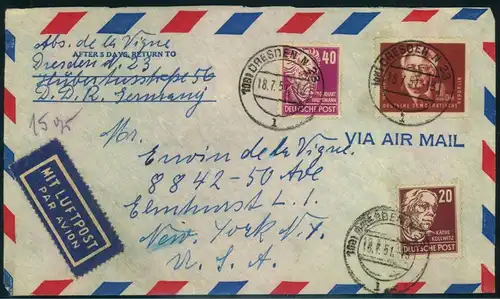 Abs. de la Vigne
AFTER 5 DAYS, RETURN TO
Dresden N. 23
Hubertusstraße 56
D.D.R. Germany
15
MIT LUFTPOST
PAR AVION
(10b) DRESDEN N 23
18.7.51
1
40
GERHART
HAUPTMANN
DEUTSCHE POST
DRESDEN N 23
DEUTSCHE DEMOKRATISCHE
VIA AIR MAIL
Mr.
Erwin de la Vigne.
8842-50 Ave
Elmhurst L.I.
New York N.Y.
U.S.A.
(10b) DRESDEN
18.7.51
1
20
KÄTHE
KOLLWITZ
DEUTSCHE POST